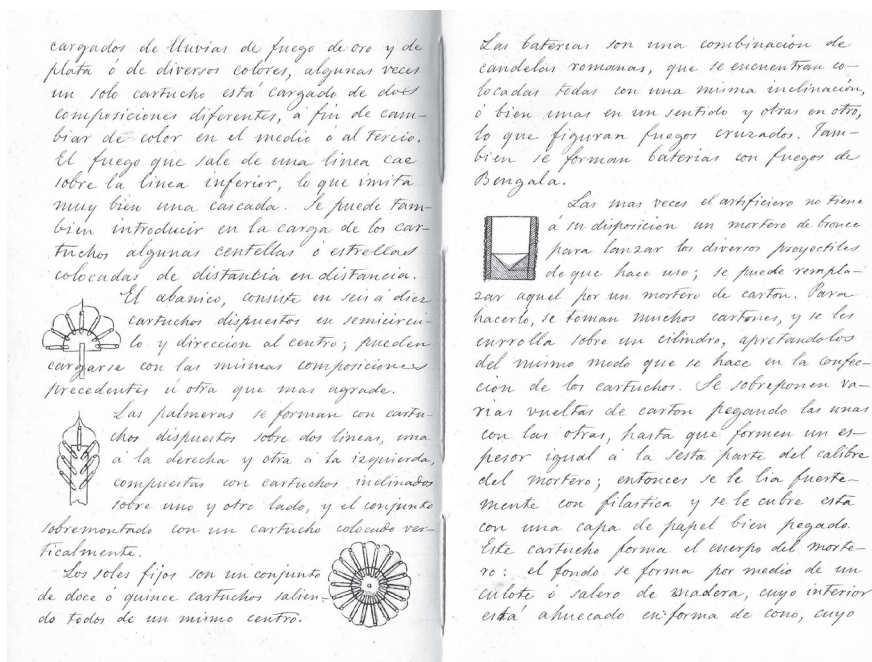 cargados de lluvias de fuego de oro y de
plata ó de diversos colores, algunas veces
un solo cartucho está cargado de dos
composiciones diferentes, á fin de cam-
biar de color en el medio ó al tercio.
El fuego que sale de una linea cae
sobre la linea inferior, lo que imita
muy bien una cascada. Se puede tam-
bien introducir en la carga de los car-
tuchos algunas centellas ó estrellas
colocadas de distantia en distancia.
El abanico, consiste en seis á diez
cartuchos dispuestos en semicircu-
lo y direccion al centro; pueden
cargarse con las mismas composiciones
precedentes ú otra que mas agrade.
Las palmeras se forman con cartu-
chos dispuestos sobre dos lineas, una
á la derecha y otra á la izquierda,
compuestas con cartuchos inclinados
sobre uno y otro lado, y el conjunto
sobremontado con un cartucho colocado ver-
ticalmente.
Los soles fijos son un conjunto
de doce ó quince cartuchos salien-
do todos de un mismo centro.
Las baterias son una combinación de
candelas romanas, que se encuentran co-
locadas todas con una misma inclinación,
ó bien unas en un sentido y otras en otro,
lo que figuran fuegos cruzados. Tam-
bien se forman baterias con fuegos de
Bengala.
Las mas veces el artificiero no tiene
á su disposicion un mortero de bronce
para lanzar los diversos proyectiles
de que hace uso; se puede rempla-
zar aquel por un mortero de carton. Para
hacerlo, se toman muchos cartones, y se les
enrolla sobre un cilindro, apretandolos
del mismo modo que se hace en la confec-
cion de los cartuchos. Se sobreponen va-
rias vueltas de carton pegando las unas
con las otras, hasta que formen un es-
pesor igual á la sesta parte del calibre
del mortero; entonces se le lia fuerte-
mente con filastica y se le cubre esta
con una capa de papel bien pegado.
Este cartucho forma el cuerpo del morte-
ro: el fondo se forma por medio de un
culote ó salero de madera, cuyo interior
está ahuecado en forma de cono, cuyo